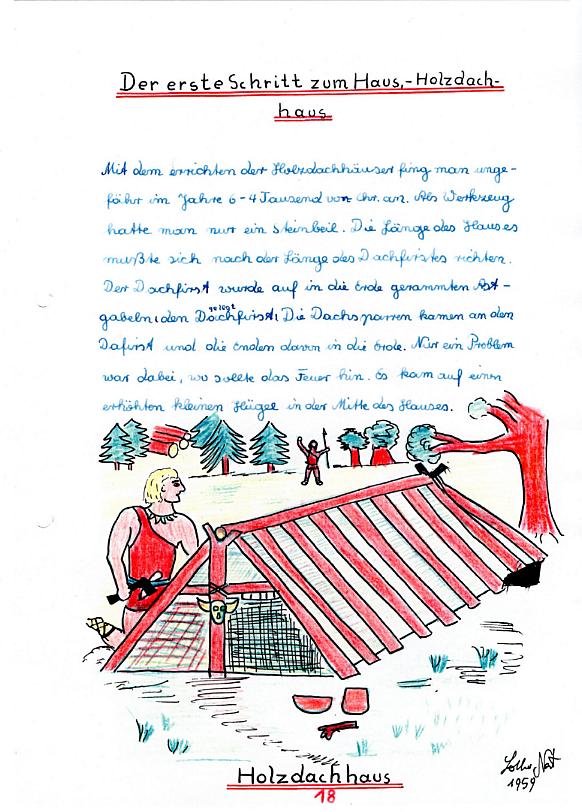 Der erste Schritt zum Haus,-Holzdach-
haus
Mit dem errichten der Holzdachhäuser fing man unge-
fähr im Jahre 6-4 Tausend von Chr. an. Als Werkzeug
hatte man nur ein Steinbeil. Die Länge des Hauses
mußte sich nach der Länge des Dachfirstes richten.
Der Dachfirst wurde auf in die Erde gerammten Ast-
gabeln, den Dachfirst, gelegt Die Dachsparren kamen an den
Dafirst und die Enden davon in die Erde. Nur ein Problem
war dabei, wo sollte das Feuer hin. Es kam auf einen
erhöhten kleinen Hügel in der Mitte des Hauses.
Holzdachhaus
18
1959